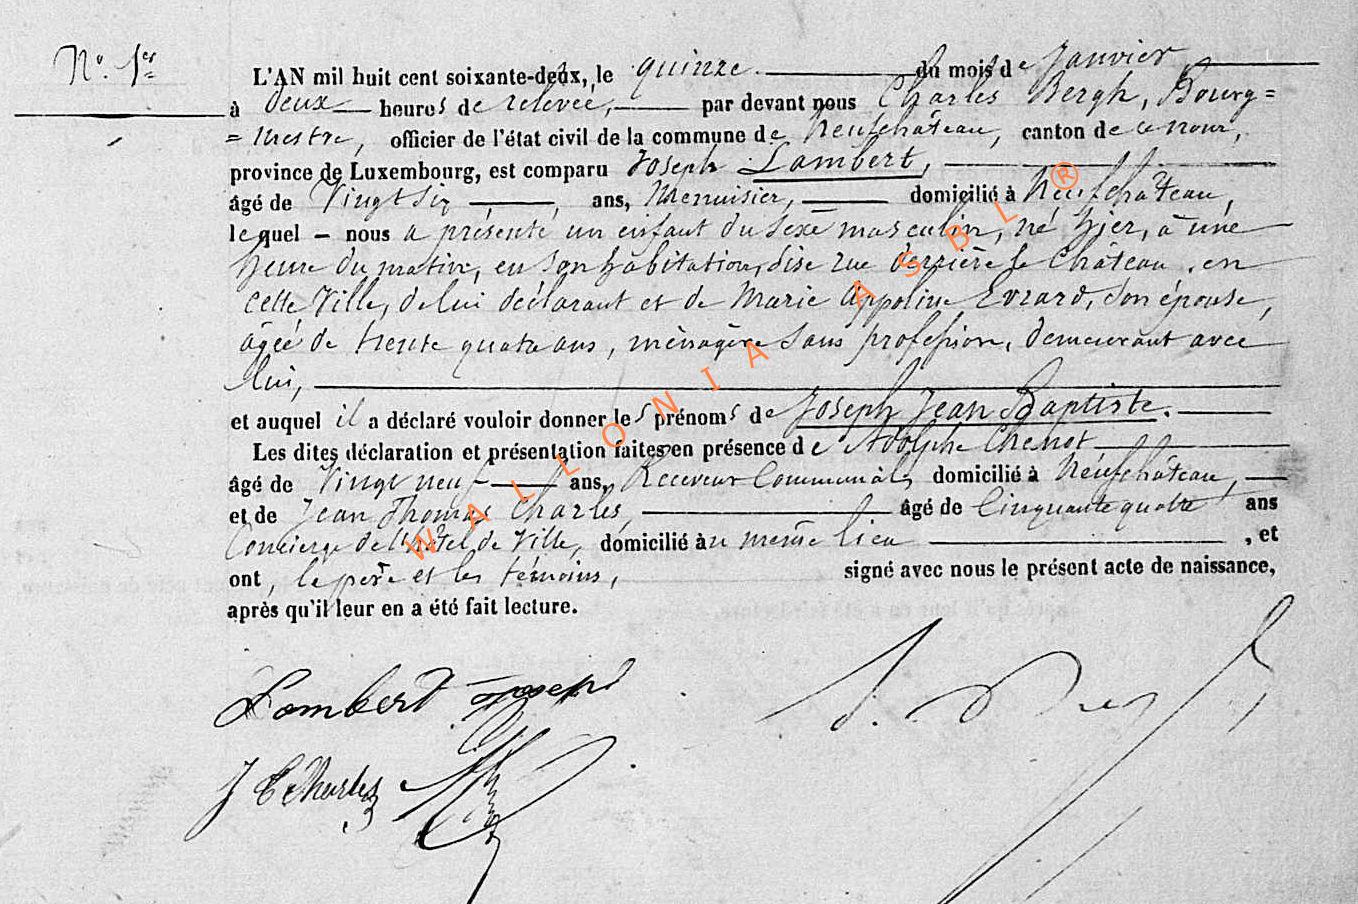 N°. 1er
L'AN mil huit cent soixante-deux, le quinze du mois de Janvier,
à deux heures de relevée, par devant nous Charles Bergh, Bourg=
=mestre, officier de l'état civil de la commune de Neufchâteau, canton de ce nom,
province de Luxembourg, est comparu Joseph Lambert,
âgé de Vingt six, ans, Menuisier, domicilié à Neufchâteau,
lequel – nous a présenté un enfant du Sexe masculin, né hier, à une
heure du matin, en son habitation, sise rue derrière le Château, en
cette Ville, de lui déclarant et de Marie Appoline Evrard, son épouse,
âgée de trente quatre ans, ménagère sans profession, demeurant avec
lui,
et auquel il a déclaré vouloir donner les prénoms de Joseph Jean Baptiste.
Les dites déclaration et présentation faites en présence de Adolphe Chenot
âgé de Vingt neuf ans, Receveur Communal, domicilié à Neufchâteau,
et de Jean Thomas Charles, âgé de Cinquante quatre ans
Concierge de l'hôtel de Ville, domicilié au même lieu , et
ont, le père et les témoins, signé avec nous le présent acte de naissance,
après qu'il leur en a été fait lecture.
Lambert Joseph
J T Charles
WALLONIA ASBL ®